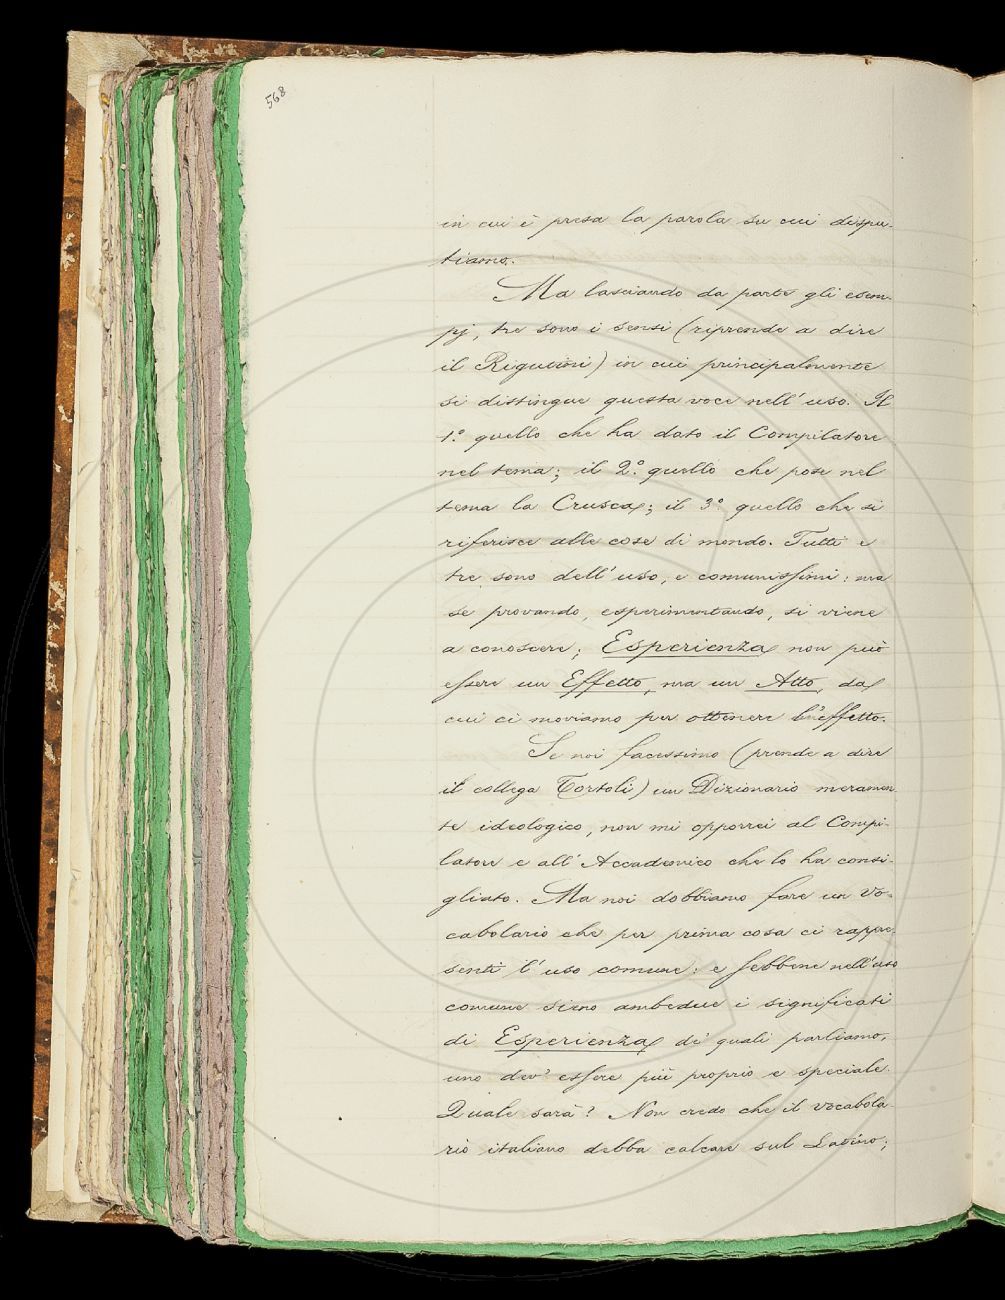 568
in cui è presa la parola su cui dispu-
tiamo.
Ma lasciando da parte gli esem-
pj, tre sono i sensi (riprende a dire
il Rigutini) in cui principalmente
si distingue questa voce nell'uso. Il
1.º quello che ha dato il Compilatore
nel tema; il 2.º quello che pose nel
tema la Crusca; il 3.º quello che si
riferisce alle cose di mondo. Tutti e
tre sono dell'uso, e comunissimi: ma
se provando, esperimentando, si viene
a conoscere; Esperienza non può
essere un Effetto, ma un Atto, da
cui ci moviamo per ottenere l'effetto.
Se noi facessimo (prende a dire
il collega Tortoli) un Dizionario meramen-
te ideologico, non mi opporrei al Compi-
latore e all'Accademico che lo ha consi-
gliato. Ma noi dobbiamo fare un Vo-
cabolario che per prima cosa ci rappre-
senti l'uso comune: e sebbene nell'uso
comune sieno ambedue i significati
di Esperienza de' quali parliamo,
uno dev'essere più proprio e speciale.
Quale sarà? Non credo che il vocabola-
rio italiano debba calcare sul Latino;